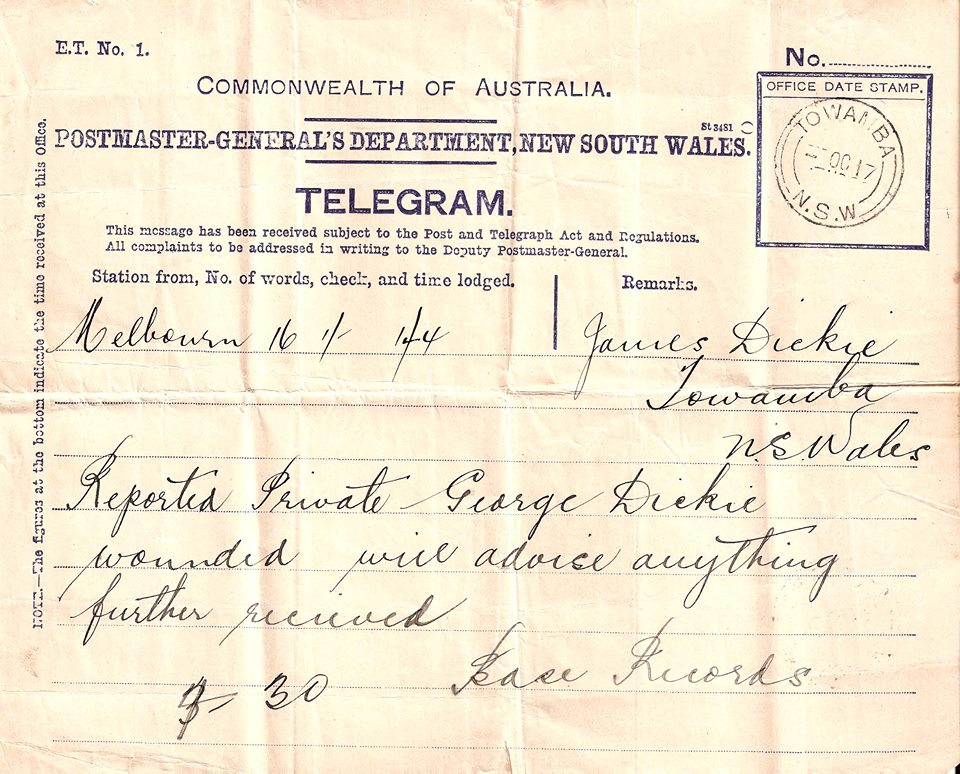 E.T. No. 1.
No.
COMMONWEALTH OF AUSTRALIA.
OFFICE DATE STAMP.
St 3481
POSTMASTER-GENERAL'S DEPARTMENT, NEW SOUTH WALES.
TOWAMBA
OC 17
N.S.W
TELEGRAM.
This message has been received subject to the Post and Telegraph Act and Regulations.
All complaints to be addressed in writing to the Deputy Postmaster-General.
Station from, No. of words, check, and time lodged.
Remarks.
NOTE.—The figures at the bottom indicate the time received at this office.
Melbourn 16 1/- 1/44
James Dickie
Towamba
N.S.Wales
Reported Private George Dickie
wounded will advise anything
further recieved
30 Base Records